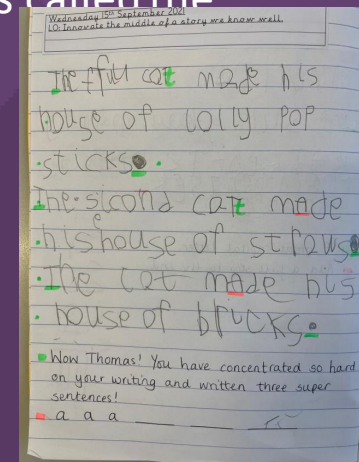 s called the
Wednesday 15th September 2021
LO: Innovate the middle of a story we know well.
The ffull cat made his
house of lolly pop
sticks.
The sicond catt made
his house of straws
The cat made his
house of brucks.
Wow Thomas! You have concentrated so hard
on your writing and written three super
sentences!
a a a